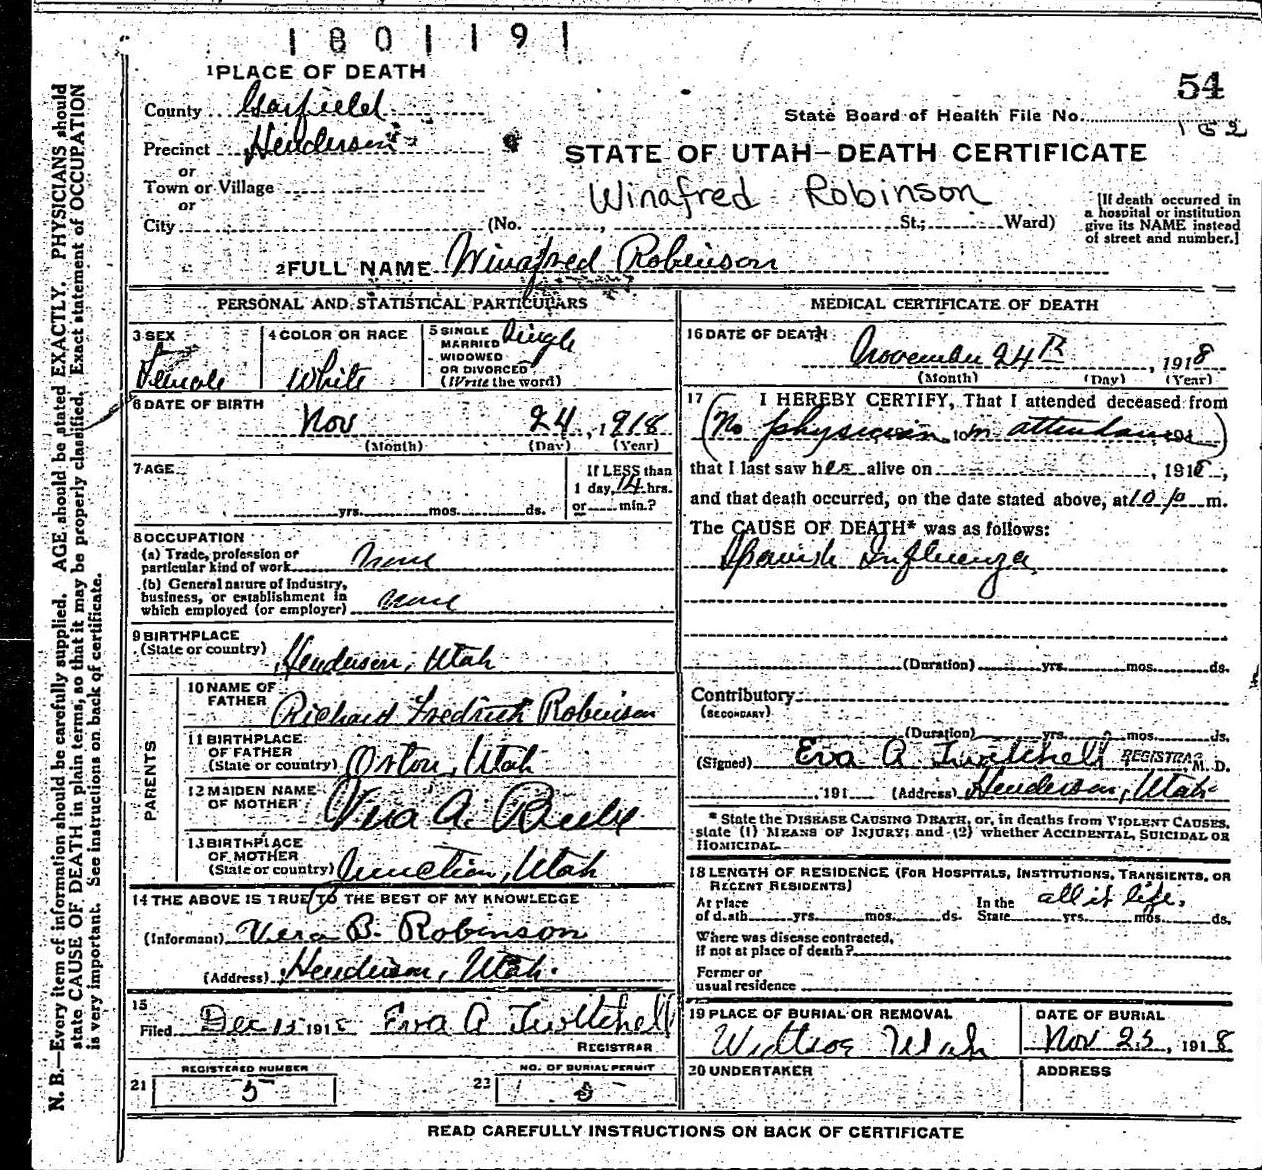 1801191
54
1 PLACE OF DEATH
County Garfield
State Board of Health File No. 152
Precinct Henderson
STATE OF UTAH—DEATH CERTIFICATE
or
Town or Village
Winafred Robinson
or
City (No. , St.; Ward)
[If death occurred in
a hospital or institution
give its NAME instead
of street and number.]
2 FULL NAME Winafred Robinson
PERSONAL AND STATISTICAL PARTICULARS
3 SEX
Female
4 COLOR OR RACE
White
5 SINGLE
MARRIED
WIDOWED
OR DIVORCED
(Write the word)
Single
6 DATE OF BIRTH
Nov 24, 1918
(Month) (Day) (Year)
7 AGE
yrs. mos. ds.
If LESS than
1 day, 14 hrs.
or min.?
8 OCCUPATION
(a) Trade, profession or
particular kind of work none
(b) General nature of industry,
business, or establishment in
which employed (or employer) none
9 BIRTHPLACE
(State or country) Henderson, Utah
PARENTS
10 NAME OF
FATHER Richard Fredrick Robinson
11 BIRTHPLACE
OF FATHER
(State or country) Orton, Utah
12 MAIDEN NAME
OF MOTHER Vera A.
13 BIRTHPLACE
OF MOTHER
(State or country) Junction, Utah
14 THE ABOVE IS TRUE TO THE BEST OF MY KNOWLEDGE
(Informant) Vera B. Robinson
(Address) Henderson, Utah.
15
Filed Dec 15 1918 Eva A Twitchell
REGISTRAR
21 REGISTERED NUMBER
5
22 NO. OF BURIAL PERMIT
5
MEDICAL CERTIFICATE OF DEATH
16 DATE OF DEATH
November 24th, 1918
(Month) (Day) (Year)
17 I HEREBY CERTIFY, That I attended deceased from
(No physician in attendance)
that I last saw her alive on , 1918,
and that death occurred, on the date stated above, at 10 p m.
The CAUSE OF DEATH* was as follows:
Spanish Influenza
(Duration) yrs. mos. ds.
Contributory
(SECONDARY)
(Duration) yrs. mos. ds.
(Signed) Eva A. Twitchell REGISTRAR M. D.
191 (Address) Henderson, Utah
* State the DISEASE CAUSING DEATH, or, in deaths from VIOLENT CAUSES,
state (1) MEANS OF INJURY; and (2) whether ACCIDENTAL, SUICIDAL OR
HOMICIDAL.
18 LENGTH OF RESIDENCE (FOR HOSPITALS, INSTITUTIONS, TRANSIENTS, OR
RECENT RESIDENTS)
At place In the all it life.
of death yrs. mos. ds. State yrs. mos. ds.
Where was disease contracted,
If not at place of death?
Former or
usual residence
19 PLACE OF BURIAL OR REMOVAL
Widtsoe Utah
DATE OF BURIAL
Nov 25, 1918
20 UNDERTAKER
ADDRESS
READ CAREFULLY INSTRUCTIONS ON BACK OF CERTIFICATE
N. B.—Every item of information should be carefully supplied. AGE should be stated EXACTLY. PHYSICIANS should
state CAUSE OF DEATH in plain terms, so that it may be properly classified. Exact statement of OCCUPATION
is very important. See instructions on back of certificate.